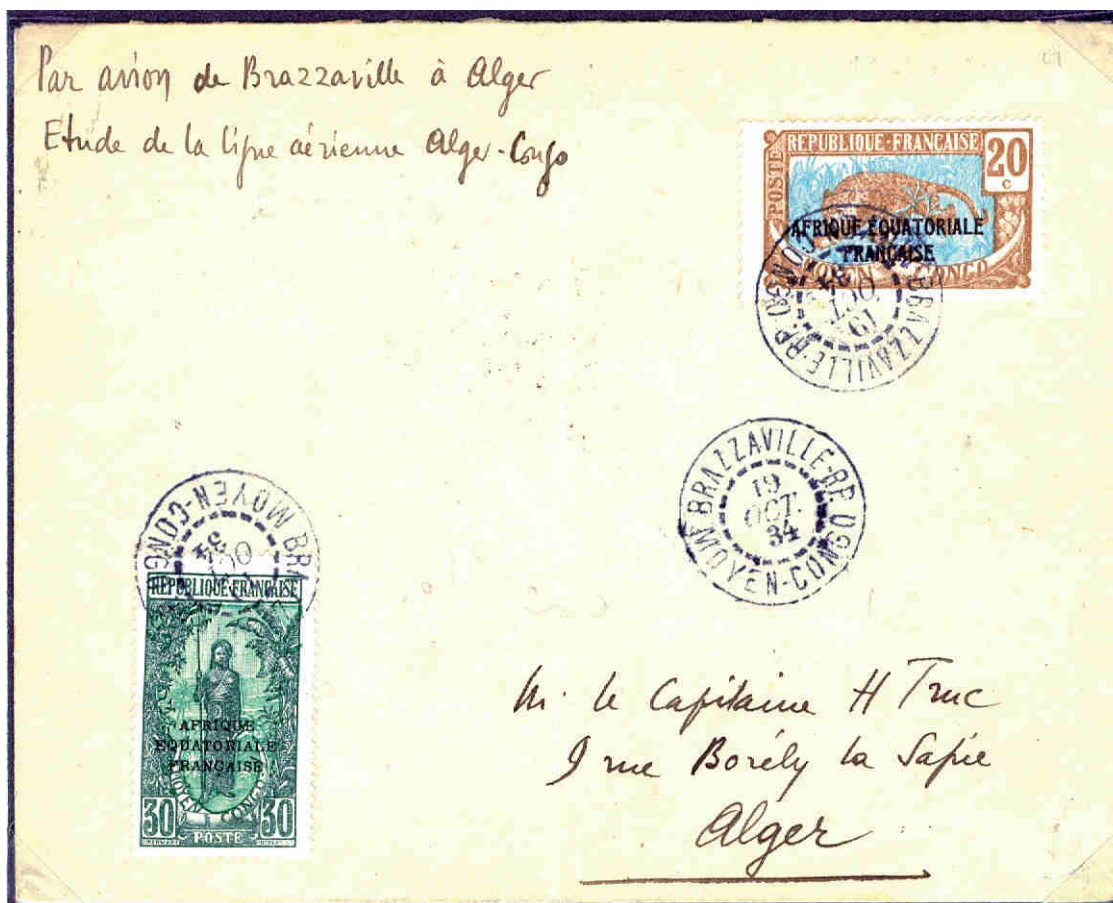 Par avion de Brazzaville à Alger
Etude de la ligne aérienne Alger-Congo
POSTE
RÉPUBLIQUE·FRANÇAISE
20
c
AFRIQUE ÉQUATORIALE
FRANÇAISE
MOYEN CONGO
BRAZZAVILLE-RP.
19
OCT.
34
BRAZZAVILLE-RP.
19
OCT.
34
MOYEN-CONGO
MOYEN-CONG
OCT
34
RÉPUBLIQUE FRANÇAISE
AFRIQUE
ÉQUATORIALE
FRANÇAISE
MOYEN CONGO
30 POSTE 30
M. le Capitaine H Truc
9 rue Borély la Sapie
Alger